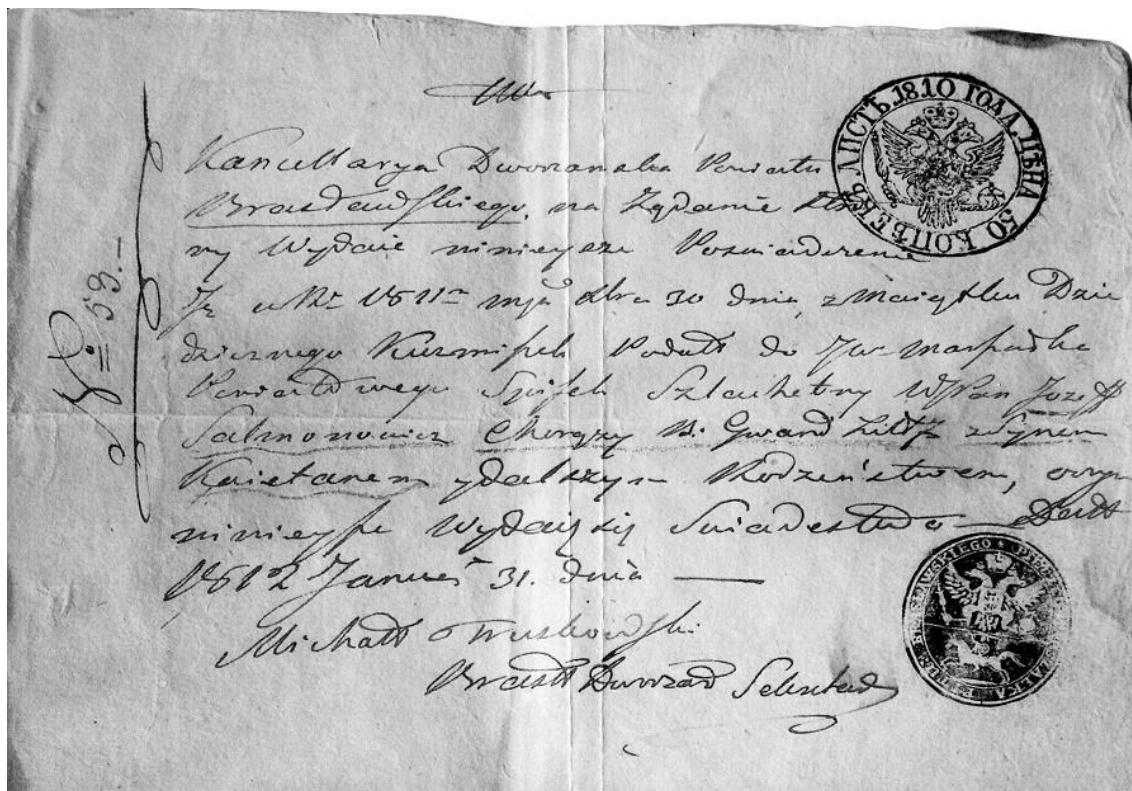 ЛИСТЪ 1810 ГОДА. ЦѢНА 50 КОПѢЕКЪ
Kancellarya Dworzanska Powiatu
Brasławskiego, na Żądanie
ny Wydaie ninieysze Poswiadczenie
Iż w Ru 1811m 30 dnia, z Maiątku Dzie
dzicznego Kuzmiszek Podał do JW Marszałka
Powiatowego Spisek Szlachetny WJPan Jozeff
Salmonowicz Chorąży B. Gward Litt z Synem
Kaietanem y dalszym Rodzeństwem, w czym
ninieysze Wydaię się Swiadectwo Datt
1812 Januar 31. dnia
Michał Truskowski
Brasł Dworzań Sekretarz
N= 53.
BRASŁAWSKIEGO